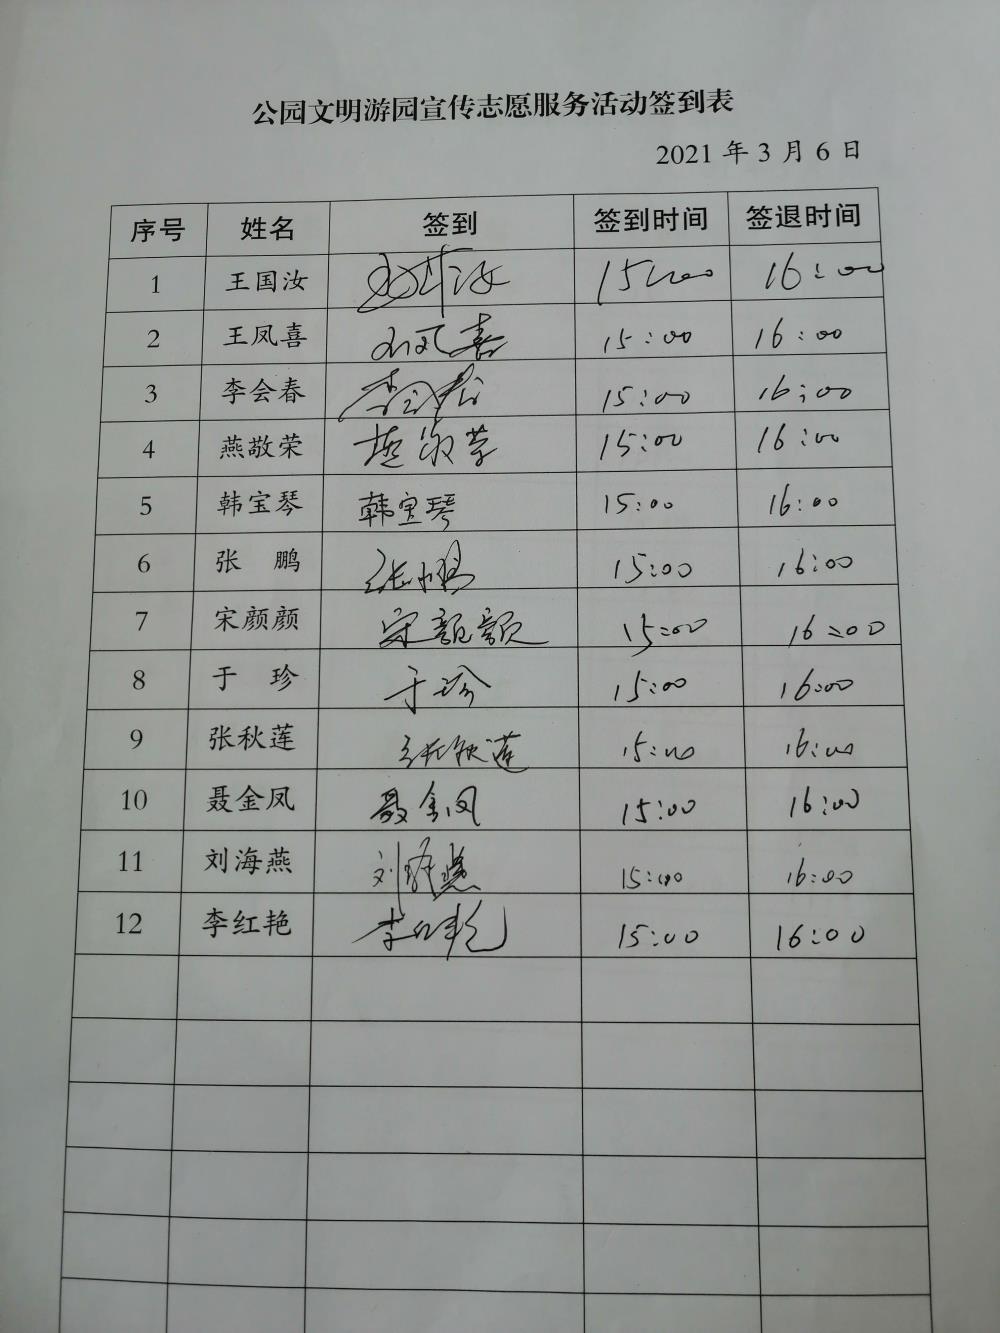 公园文明游园宣传志愿服务活动签到表
2021 年 3 月 6 日
序号 姓名 签到 签到时间 签退时间
1 王国汝 15:00 16:00
2 王凤喜 王凤喜 15:00 16:00
3 李会春 李会春 15:00 16:00
4 燕敬荣 燕敬荣 15:00 16:00
5 韩宝琴 韩宝琴 15:00 16:00
6 张 鹏 张鹏 15:00 16:00
7 宋颜颜 宋颜颜 15:00 16:00
8 于 珍 于珍 15:00 16:00
9 张秋莲 张秋莲 15:00 16:00
10 聂金凤 聂金凤 15:00 16:00
11 刘海燕 刘海燕 15:00 16:00
12 李红艳 李红艳 15:00 16:00